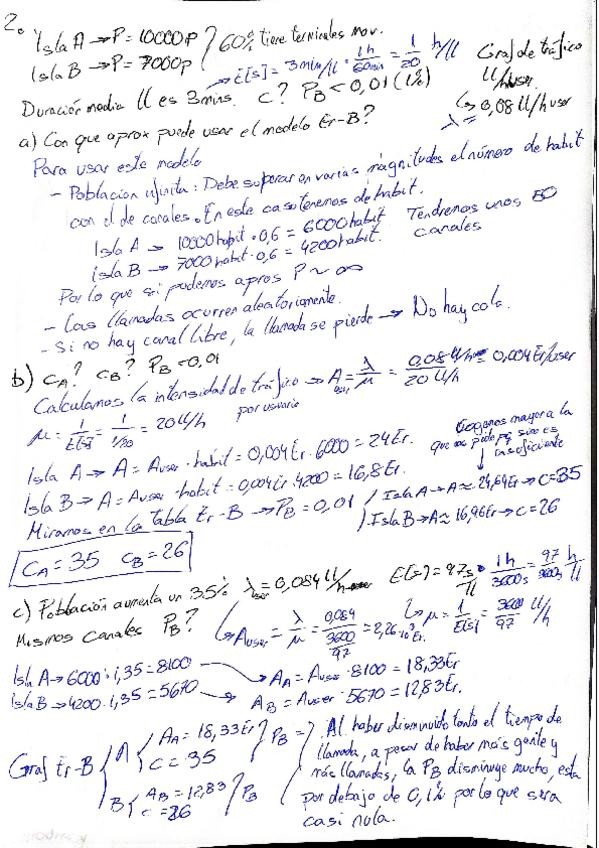 2.
Isla A → P = 10000p } 60% tiene terminales mov.
Isla B → P = 7000p
→ E[s] = 3min/ll · 1h/60min = 1/20 h/ll
Grad de tráfico ll/h user.
↳ λ = 0,08 ll/h user
Duración media ll es 3mins. C? P_B < 0,01 (1%)
a) Con que aprox puede usar el modelo Er-B?
Para usar este modelo
- Población infinita: Debe superar en varias magnitudes el número de habit
con el de canales. En este caso tenemos de habit.
Isla A → 10000habit · 0,6 = 6000habit
Isla B → 7000habit · 0,6 = 4200habit.
Tendremos unos 50 canales
Por lo que si podemos aprox P ~ ∞
- Las llamadas ocurren aleatoriamente.
- Si no hay canal libre, la llamada se pierde → No hay cola.
b) C_A? C_B? P_B = 0,01
Calculamos la intensidad de tráfico → A_user = λ/μ = 0,08 ll/h / 20 ll/h = 0,004 Er/user
por usuario
μ = 1/E[s] = 1/(1/20) = 20 ll/h
Isla A → A = Auser · habit = 0,004Er · 6000 = 24Er.
Isla B → A = Auser · habit = 0,004Er · 4200 = 16,8Er.
Cogemos mayor a la
que nos pide pq sino es
insuficiente
Miramos en la tabla Er-B → P_B = 0,01 / Isla A → A ≈ 24,64Er → C=35
Isla B → A ≈ 16,96Er → C = 26
C_A = 35 C_B = 26
c) Población aumenta un 35% λ_user = 0,084 ll/h E[s] = 97s/ll · 1h/3600s = 97/3600 h/ll
Mismos canales P_B?
↳ Auser = λ/μ = 0,084/(3600/97) = 2,26·10⁻³ Er.
↳ μ = 1/E[s] = 3600/97 ll/h
Isla A → 6000 · 1,35 = 8100 → A_A = Auser · 8100 = 18,33Er
Isla B → 4200 · 1,35 = 5670 → A_B = Auser · 5670 = 12,83Er.
Graf Er-B { A { A_A = 18,33Er C = 35 } P_B =
B { A_B = 12,83 C = 26 } P_B
Al haber disminuido tanto el tiempo de
llamada, a pesar de haber más gente y
más llamadas, la P_B disminuye mucho, esta
por debajo de 0,1% por lo que sera
casi nula.